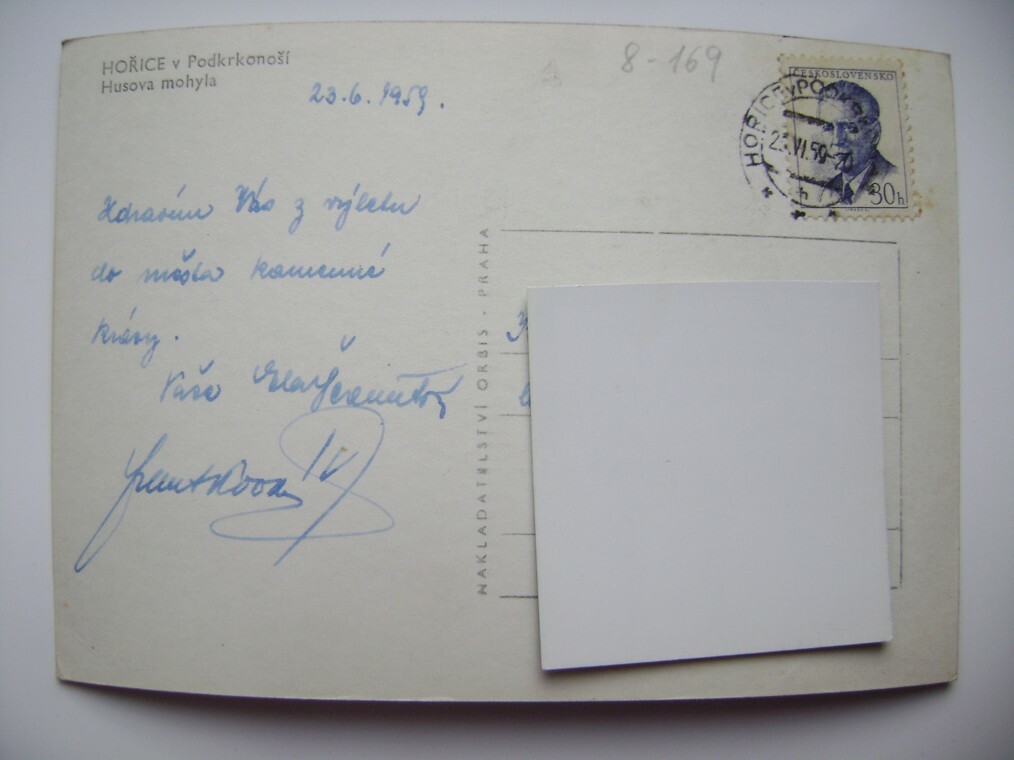 HOŘICE v Podkrkonoší
Husova mohyla
23.6.1959.
8-169
ČESKOSLOVENSKO
HOŘICE V PODKR
23.VI.59-20
30h
Zdravím Vás z výletu
do města kamenné
krásy.
Vaše
NAKLADATELSTVÍ ORBIS · PRAHA